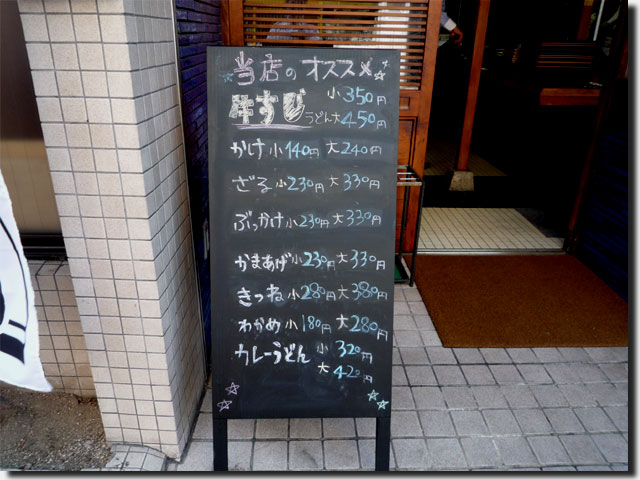 当店のオススメ
牛すじ 小 350円
うどん 大 450円
かけ 小 140円 大 240円
ざる 小 230円 大 330円
ぶっかけ 小 230円 大 330円
かまあげ 小 230円 大 330円
きつね 小 280円 大 380円
わかめ 小 180円 大 280円
カレーうどん 小 320円
大 420円